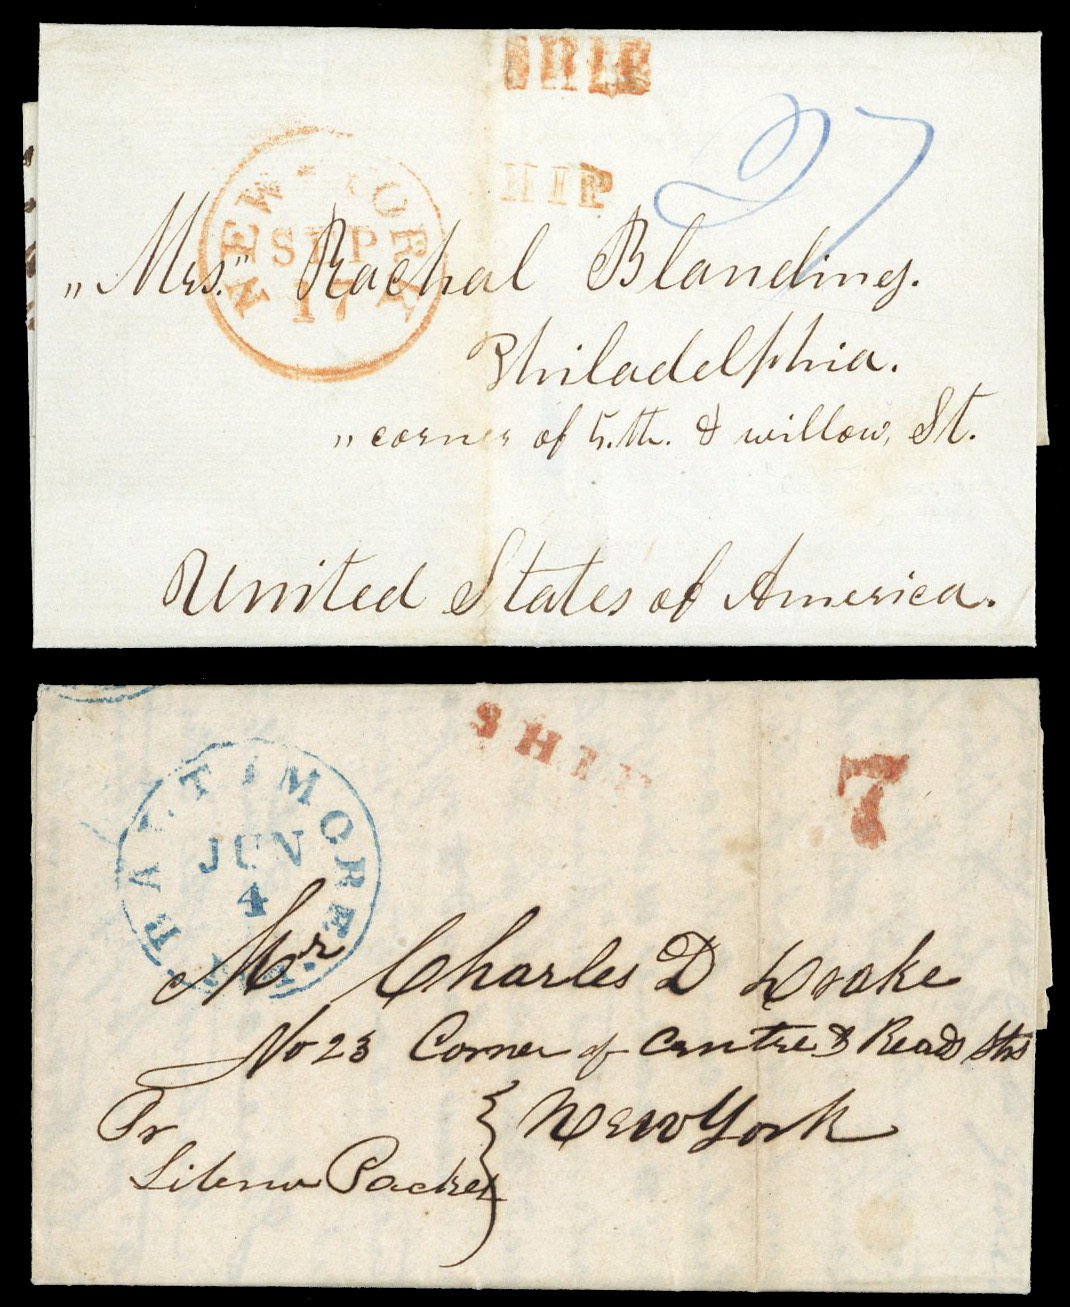 SHIP
SHIP
27
NEW-YORK
SEP
17
„Mrs." Rachal Blanding.
Philadelphia.
„corner of 5.th. & willow, St.
United States of America.
SHIP
7
BALTIMORE Md.
JUN
4
Mr Charles D Drake
No 23 Corner of Centre & Read Sts
New York
Pr
Packet